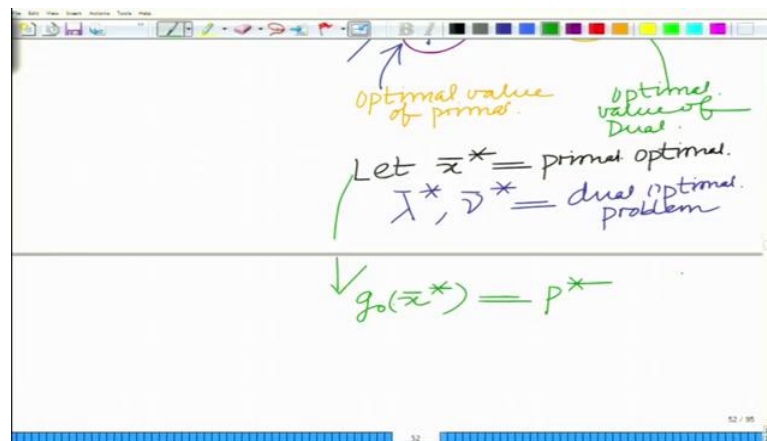 File Edit View Insert Actions Tools Help
B I
optimal value
of primal.
optimal
value of
Dual.
Let x̄* = primal optimal.
λ̄*, ν̄* = dual optimal
problem
g₀(x̄*) = p*
52 / 95
52